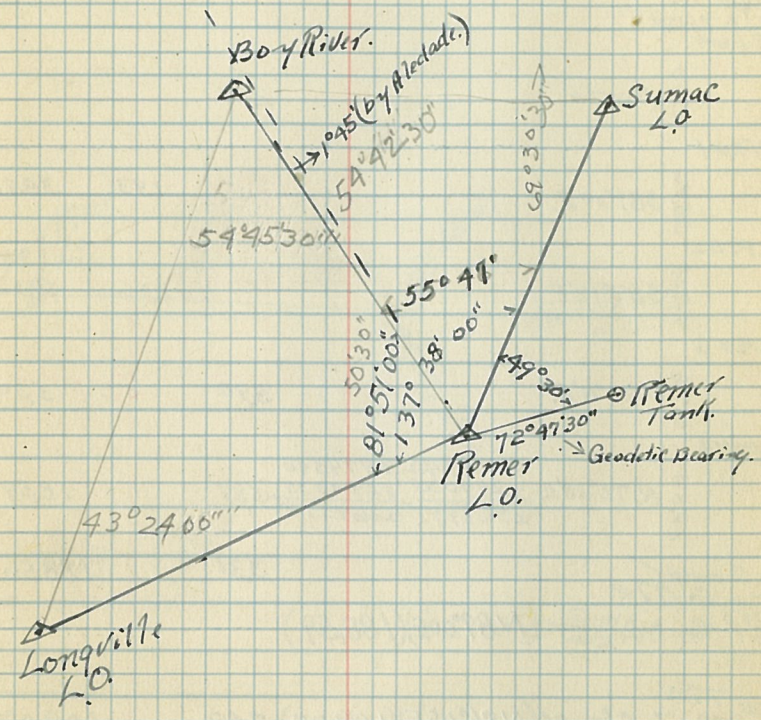 Boy River.
1°45' (by Aledade.)
54°42'30"
69°30'30"
Sumac
L.O.
54°45'30"
55°47'
50'30"
81°51'00"
137° 38' 00"
49°30'
Remer
Tank.
72°47'30"
Geodetic Bearing.
Remer
L.O.
43°24'00"
Longville
L.O.